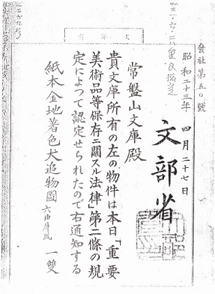 会社第五〇號
昭和二十三年 四月二十七日
文部省
常盤山文庫殿
貴文庫所有の左の物件は本日「重要
美術品等保存ニ關スル法律」第二條の規
定によつて認定せられたので右通知する
紙本金地著色犬追物圖 六曲屏風 一雙